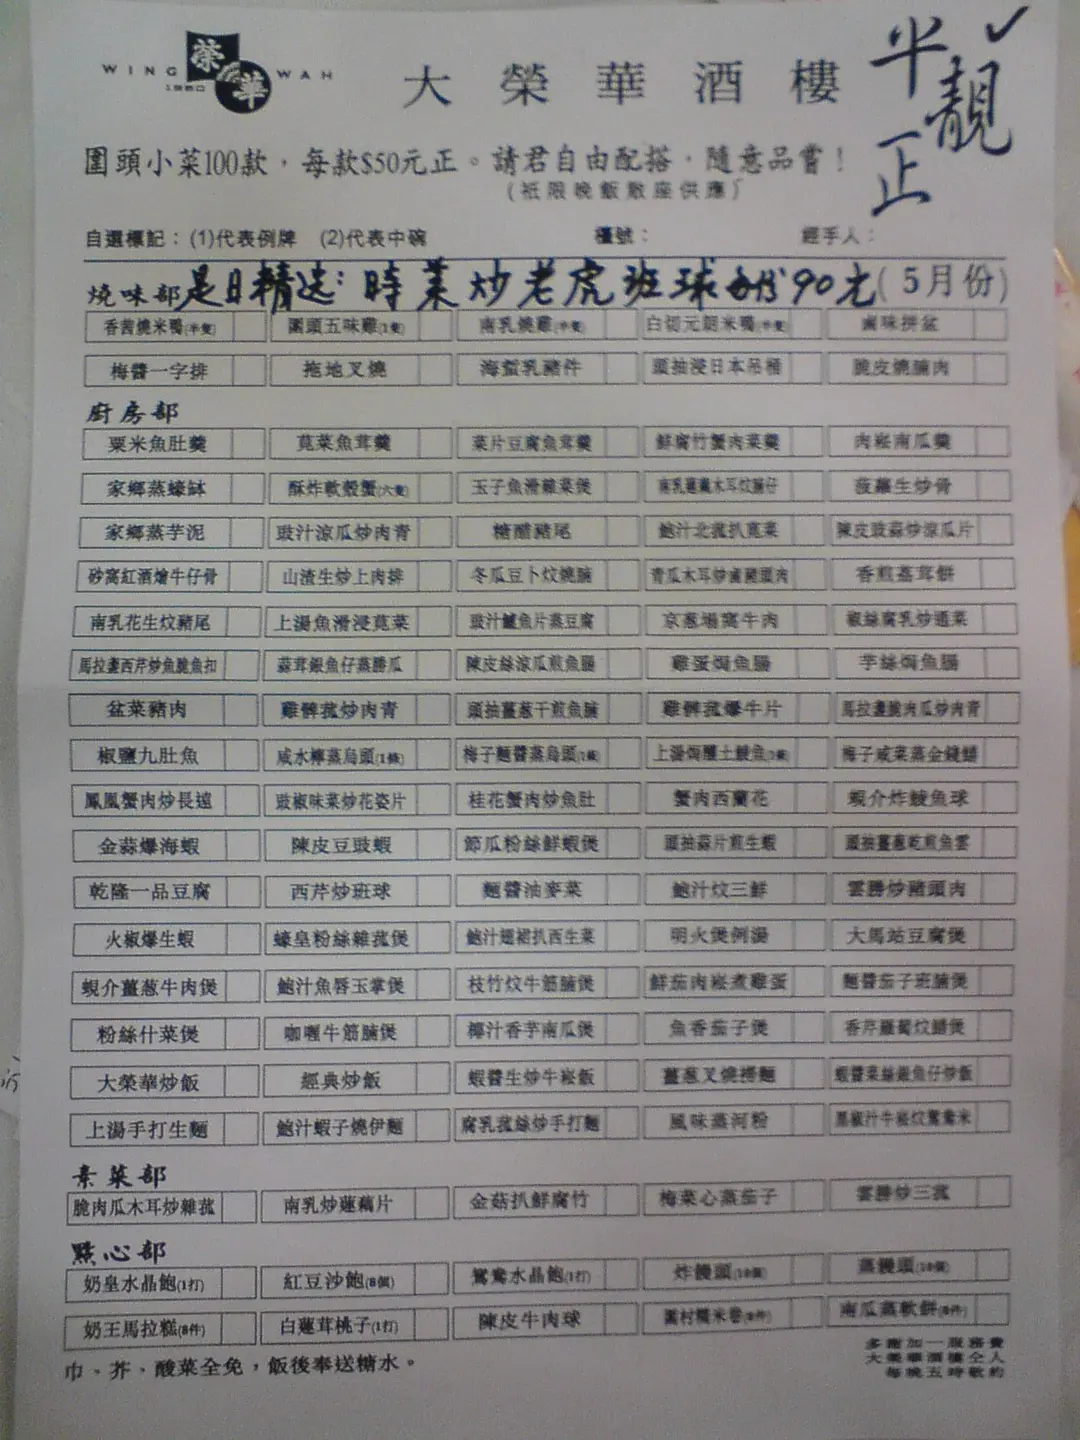 榮華
WING WAH
1950
大榮華酒樓
平靚正
圍頭小菜100款，每款$50元正。請君自由配搭，隨意品嘗！
(祇限晚飯散座供應)
自選標記：(1)代表例牌 (2)代表中碗 檯號： 經手人：
燒味部 是日精选：時菜炒老虎班球 90元 (5月份)
香茜燒米鴨(半隻) 圍頭五味雞(1隻) 南乳燒雞(半隻) 白切元朗米鴨(半隻) 鹵味拼盆
梅醬一字排 拖地叉燒 海蜇乳豬件 頭抽浸日本吊桶 脆皮燒腩肉
廚房部
粟米魚肚羹 莧菜魚茸羹 菜片豆腐魚茸羹 鮮腐竹蟹肉菜羹 肉崧南瓜羹
家鄉蒸蠔缽 酥炸軟殼蟹(六隻) 玉子魚滑雜菜煲 南乳蓮藕木耳炆腩仔 菠蘿生炒骨
家鄉蒸芋泥 豉汁涼瓜炒肉青 糖醋豬尾 鮑汁北菰扒莧菜 陳皮豉蒜炒涼瓜片
砂窩紅酒燴牛仔骨 山渣生炒上肉排 冬瓜豆卜炆燒腩 青瓜木耳炒鹵豬頭肉 香煎蓮茸餅
南乳花生炆豬尾 上湯魚滑浸莧菜 豉汁鱸魚片蒸豆腐 京蔥塌窩牛肉 椒絲腐乳炒通菜
馬拉盞西芹炒魚脆魚扣 蒜茸銀魚仔蒸勝瓜 陳皮絲涼瓜煎魚腸 雞蛋焗魚腸 芋絲焗魚腸
盆菜豬肉 雞髀菰炒肉青 頭抽薑蔥干煎魚腩 雞髀菰爆牛片 馬拉盞脆肉瓜炒肉青
椒鹽九肚魚 咸水檸蒸烏頭(1條) 梅子麵醬蒸烏頭(1條) 上湯焗釀土鯪魚(1條) 梅子咸菜蒸金錢鱔
鳳凰蟹肉炒長遠 豉椒味菜炒花姿片 桂花蟹肉炒魚肚 蟹肉西蘭花 蜆介炸鯪魚球
金蒜爆海蝦 陳皮豆豉蝦 節瓜粉絲鮮蝦煲 頭抽蒜片煎生蝦 頭抽薑蔥乾煎魚雲
乾隆一品豆腐 西芹炒班球 麵醬油麥菜 鮑汁炆三鮮 雲勝炒豬頭肉
火椒爆生蝦 蠔皇粉絲雜菰煲 鮑汁翅裙扒西生菜 明火煲例湯 大馬站豆腐煲
蜆介薑蔥牛肉煲 鮑汁魚唇玉掌煲 枝竹炆牛筋腩煲 鮮茄肉崧煮雞蛋 麵醬茄子班腩煲
粉絲什菜煲 咖喱牛筋腩煲 椰汁香芋南瓜煲 魚香茄子煲 香芹蘿蔔炆鱔煲
大榮華炒飯 經典炒飯 蝦醬生炒牛崧飯 薑蔥叉燒撈麵 蝦醬菜絲銀魚仔炒飯
上湯手打生麵 鮑汁蝦子燒伊麵 腐乳菰絲炒手打麵 風味蒸河粉 黑椒汁牛崧炆鴛鴦米
素菜部
脆肉瓜木耳炒雜菰 南乳炒蓮藕片 金菇扒鮮腐竹 梅菜心蒸茄子 雲勝炒三菰
點心部
奶皇水晶飽(1打) 紅豆沙飽(8個) 鴛鴦水晶飽(1打) 炸饅頭(10個) 蒸饅頭(10個)
奶王馬拉糕(8件) 白蓮茸桃子(1打) 陳皮牛肉球 圍村糯米卷(8件) 南瓜蒸軟餅(8件)
巾、芥、酸菜全免，飯後奉送糖水。
多謝加一服務費
大榮華酒樓仝人
每晚五時敬約